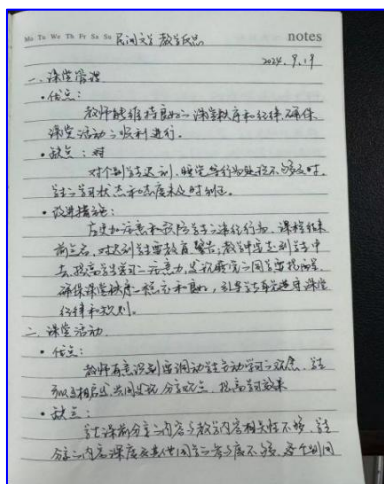 Mo Tu We Th Fr Sa Su 民间文学教学反思 notes
2024.9.19
一、课堂管理
• 优点：
教师能维持良好的课堂秩序和纪律，确保
课堂活动的顺利进行。
• 缺点：对
对个别学生迟到、睡觉等行为处理不够及时，
学生的学习状态和态度未及时纠正。
• 改进措施：
应更加注意和预防学生的违纪行为，课程结束
前点名，对迟到学生要教育警告；教师要走到学生中
去，提高学生学习的注意力，发现睡觉的同学要提醒，
确保课堂秩序的稳定和良好，引导学生自觉遵守课堂
纪律和规则。
二、课堂活动
• 优点：
教师有意识调动学生主动学习的观念，学生
可以互相启发，共同进步，分享观点，提高学习效果
• 缺点：
学生课前分享的内容与教学内容相关性不够，学生
分享的内容深度及其他同学的参与度不够，整个时间